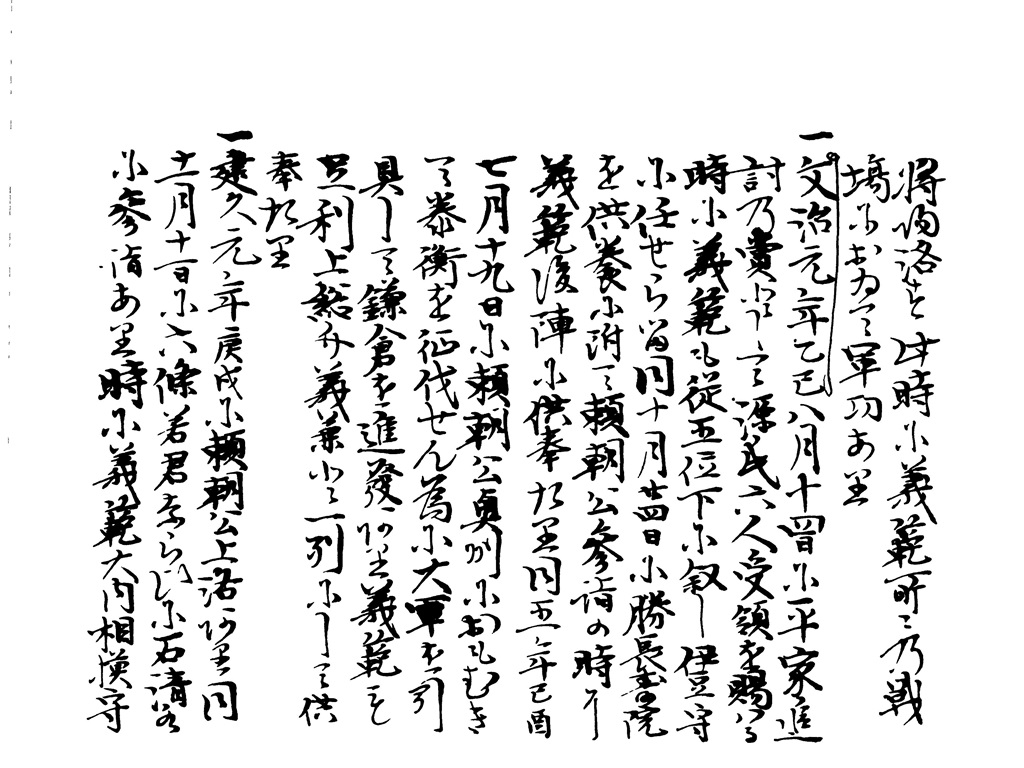 将帰洛す此時に義範所々乃戦
場におゐて軍功あり
一文治元年乙巳八月十四日に平家追
討乃賞として源氏六人受領を賜はる
時に義範も従五位下に叙し伊豆守
に任せらる同十月廿四日に勝長寿院
を供養に附て頼朝公参詣の時に
義範後陣に供奉たり同五年己酉
七月十九日に頼朝公奥州におもむき
て泰衡を征伐せん為に大軍を引
具して鎌倉を進發あり義範も
足利上総介義兼と一列にして供
奉たり
一建久元年庚戌に頼朝公上洛あり同
十一月十一日に六條若君ならひに石清水
に参詣あり時に義範大内相模守